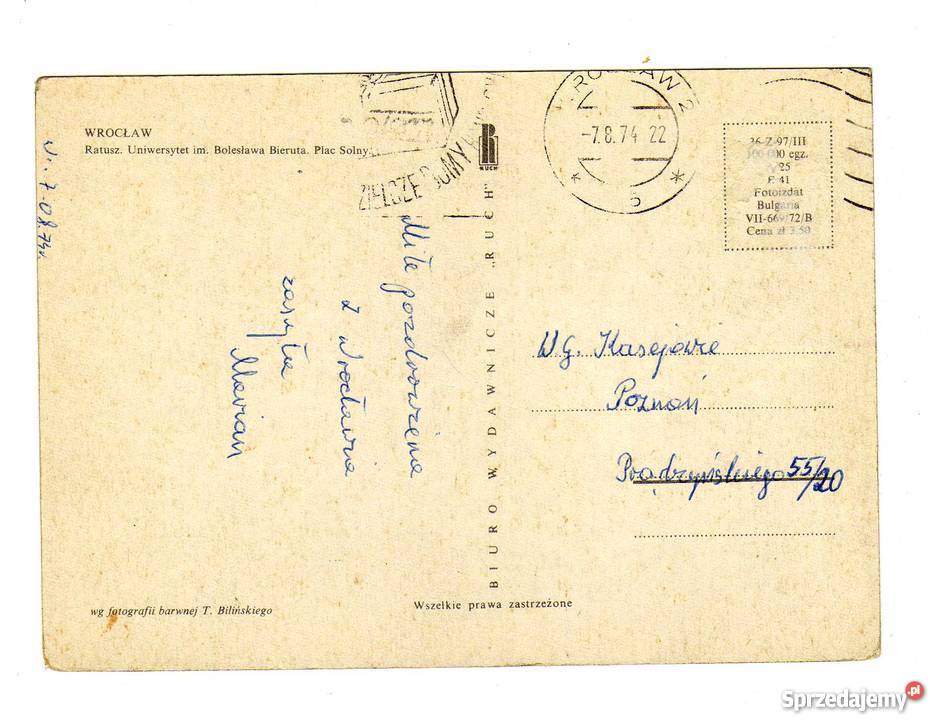 WROCŁAW
Ratusz. Uniwersytet im. Bolesława Bieruta. Plac Solny.
7.08.74
Miłe pozdrowienia
z Wrocławia
zasyła
Marian
wg fotografii barwnej T. Bilińskiego
BIURO WYDAWNICZE „RUCH"
RUCH
Wszelkie prawa zastrzeżone
WROCŁAW 2
-7.8.74 22
5
36-Z-97/III
100 000 egz.
25
41
Fotoizdat
Bulgaria
VII-669/72/B
Cena zł 3.50
W.G. Kasejowie
Poznań
Prądzyńskiego 55/20
Sprzedajemy.pl